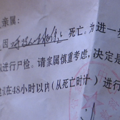 亲属：
因 死亡，为进一步
进行尸检。请家属慎重考虑，决定是
在48小时以内（从死亡时计）进行